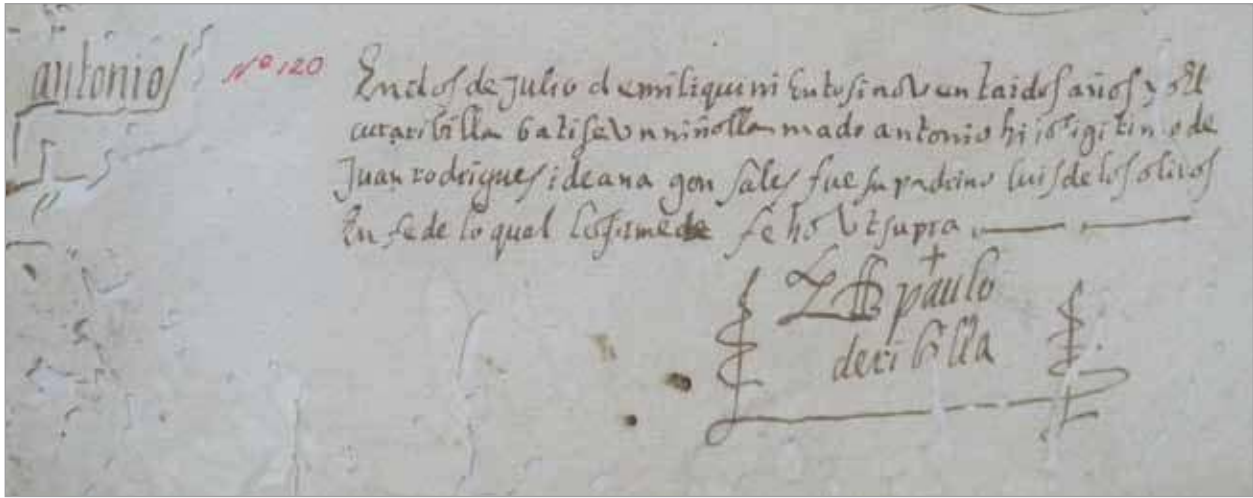 antonio
Nº 120
En dos de Julio de mil i quini entos i noventa i dos años yo El
cura ribilla batise Un niño llamado antonio hijo ligitimo de
Juan rodrigues i de ana gonsales fue su padrino luis de los olivos
En fe de lo qual lo firme fe ho Ut supra
paulo
de ribilla